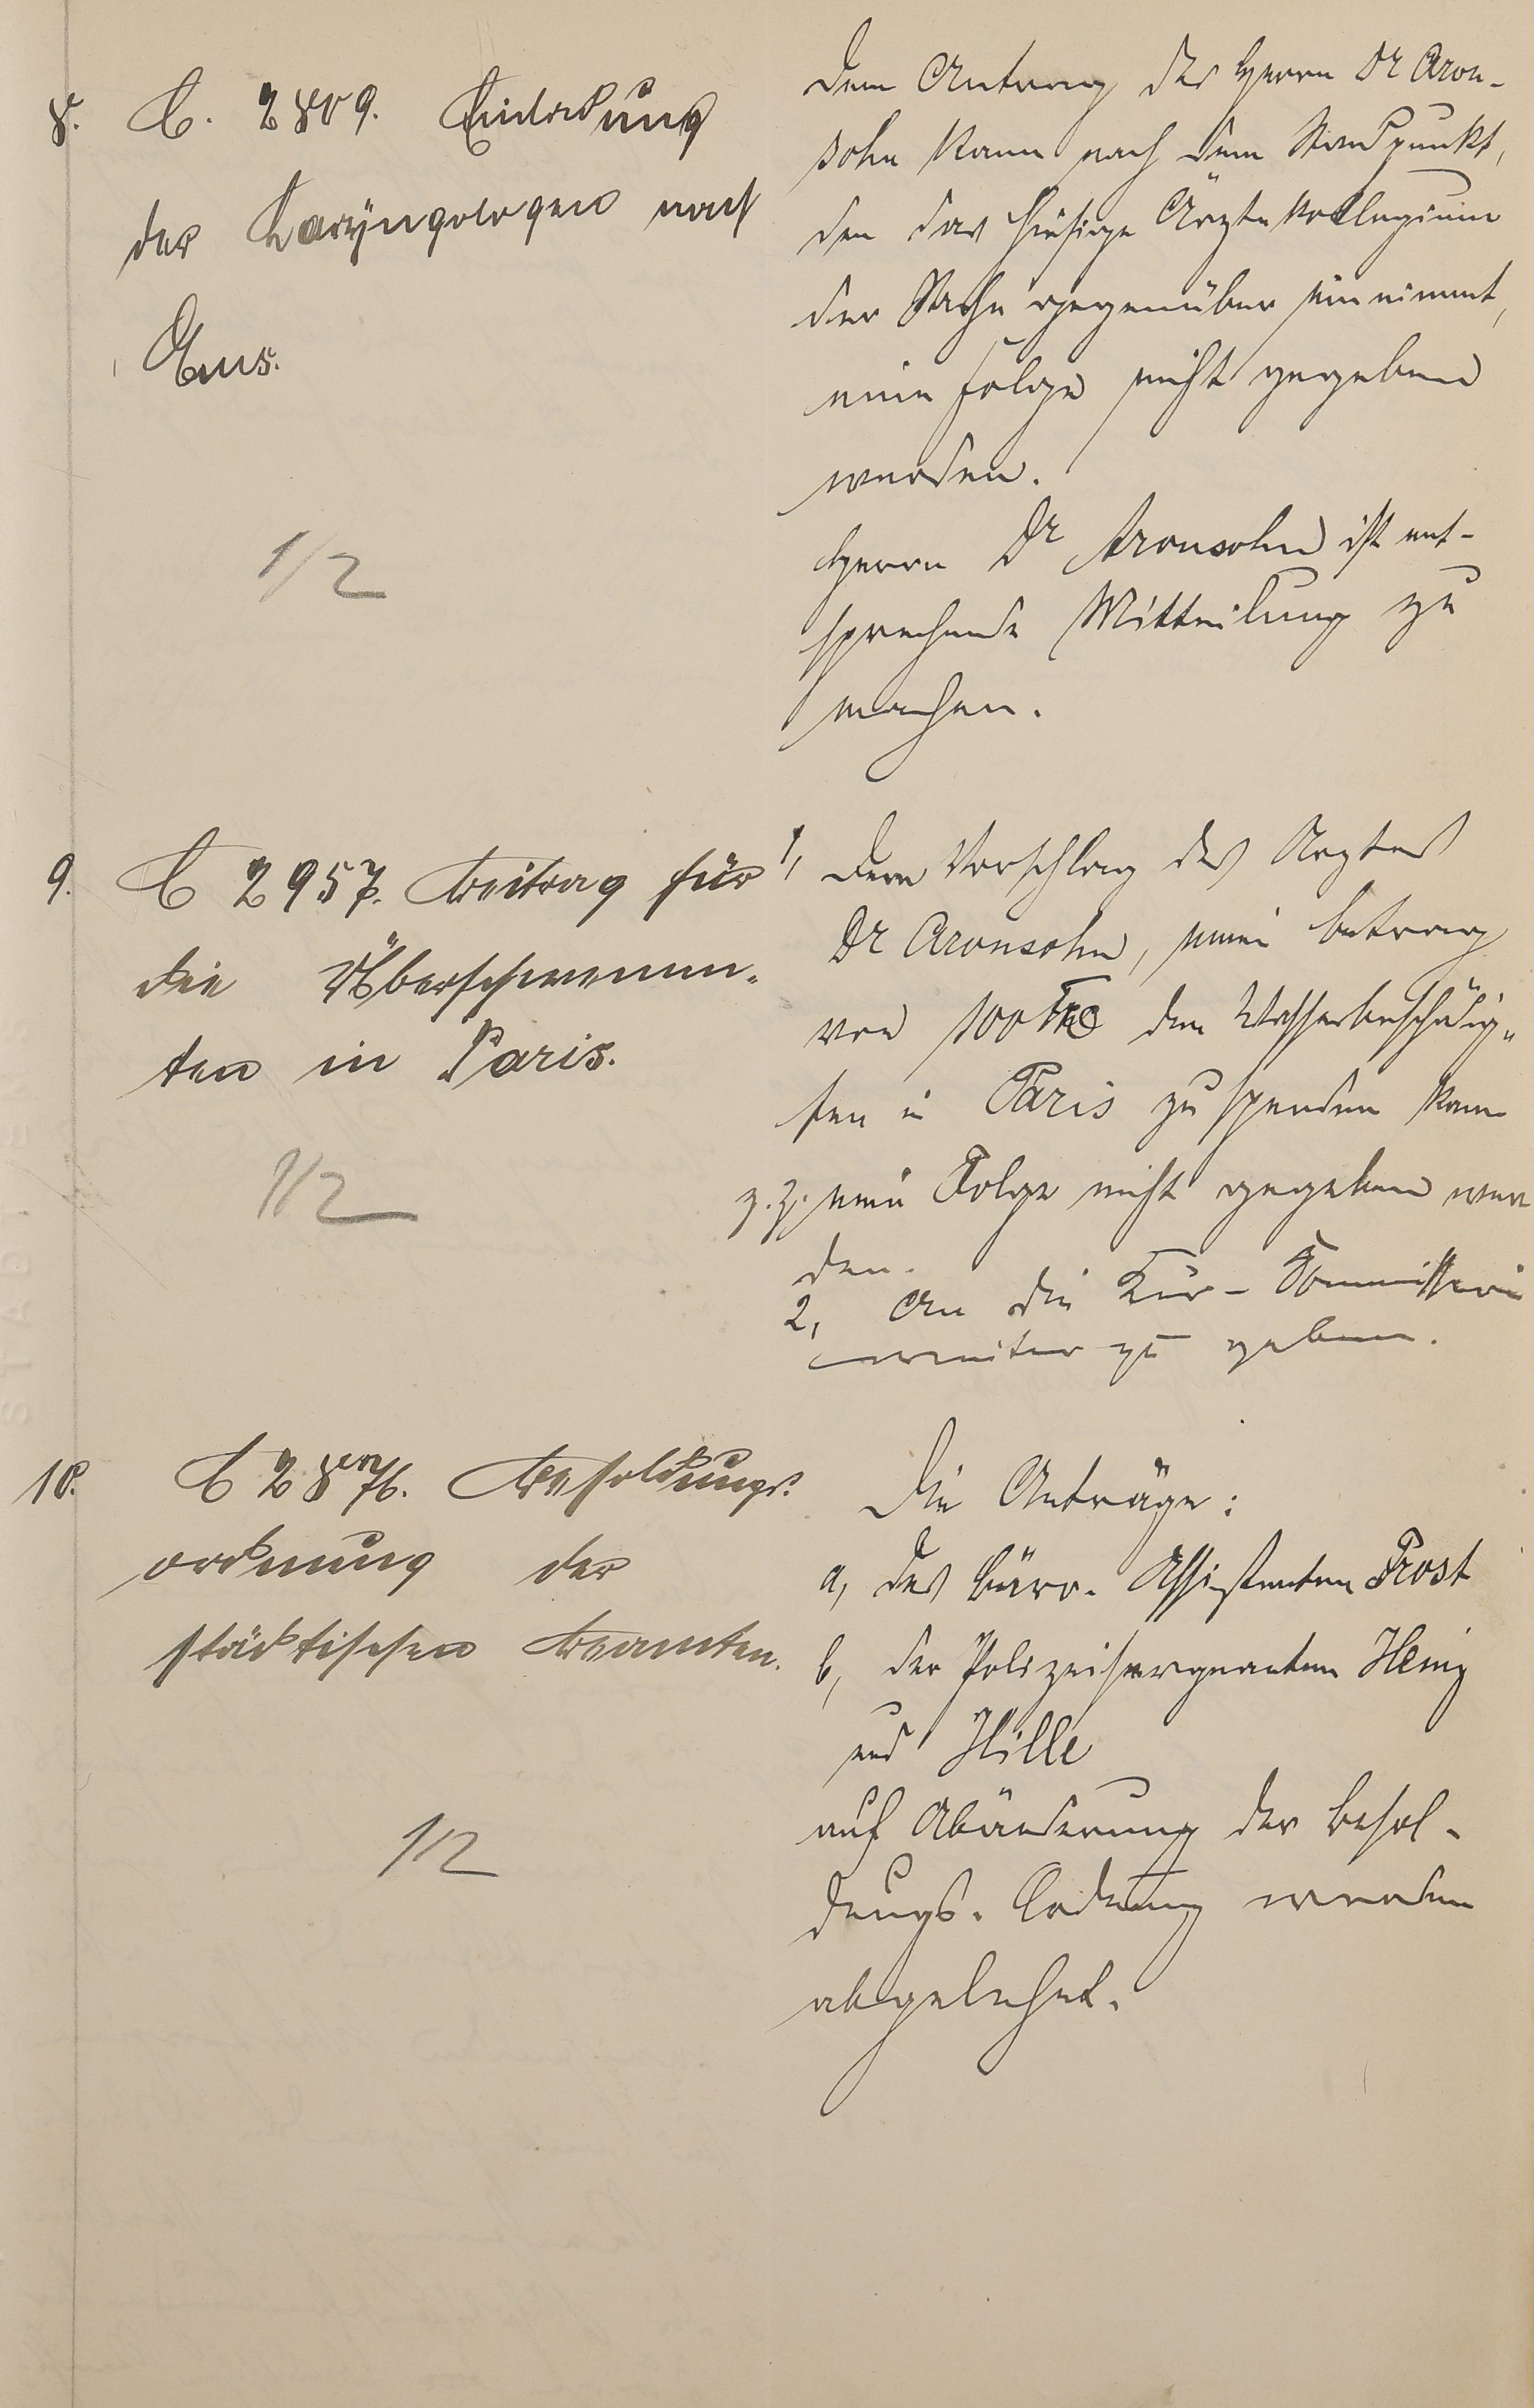 8. C. 2809. Einladung
der Laryngologen nach
Ems.
1/2
Dem Antrag des Herrn Dr Aron-
sohn kann nach dem Standpunkt,
den das hiesige Ärztekollegium
der Sache gegenüber einnimmt,
eine Folge nicht gegeben
werden.
Herrn Dr Aronsohn ist ent-
sprechende Mitteilung zu
machen.
9. C 2957. Beitrag für
die Überschwemm-
ten in Paris.
1/2
1, Dem Vorschlag des Arztes
Dr Aronsohn, einen Betrag
von 100 den Wasserbeschädig-
ten in Paris zu spenden kann
z. Z. eine Folge nicht gegeben wer
den.
2, An die Kur-Kommission
weiter zu geben.
10. C 2876. Besoldungs-
ordnung der
städtischen Beamten.
1/2
Die Anträge:
a, des Büro-Assistenten Frost
b, der Polizeisergeanten Heinz
und Hille
auf Abänderung der Besol-
dungs-Ordnung werden
abgelehnt.